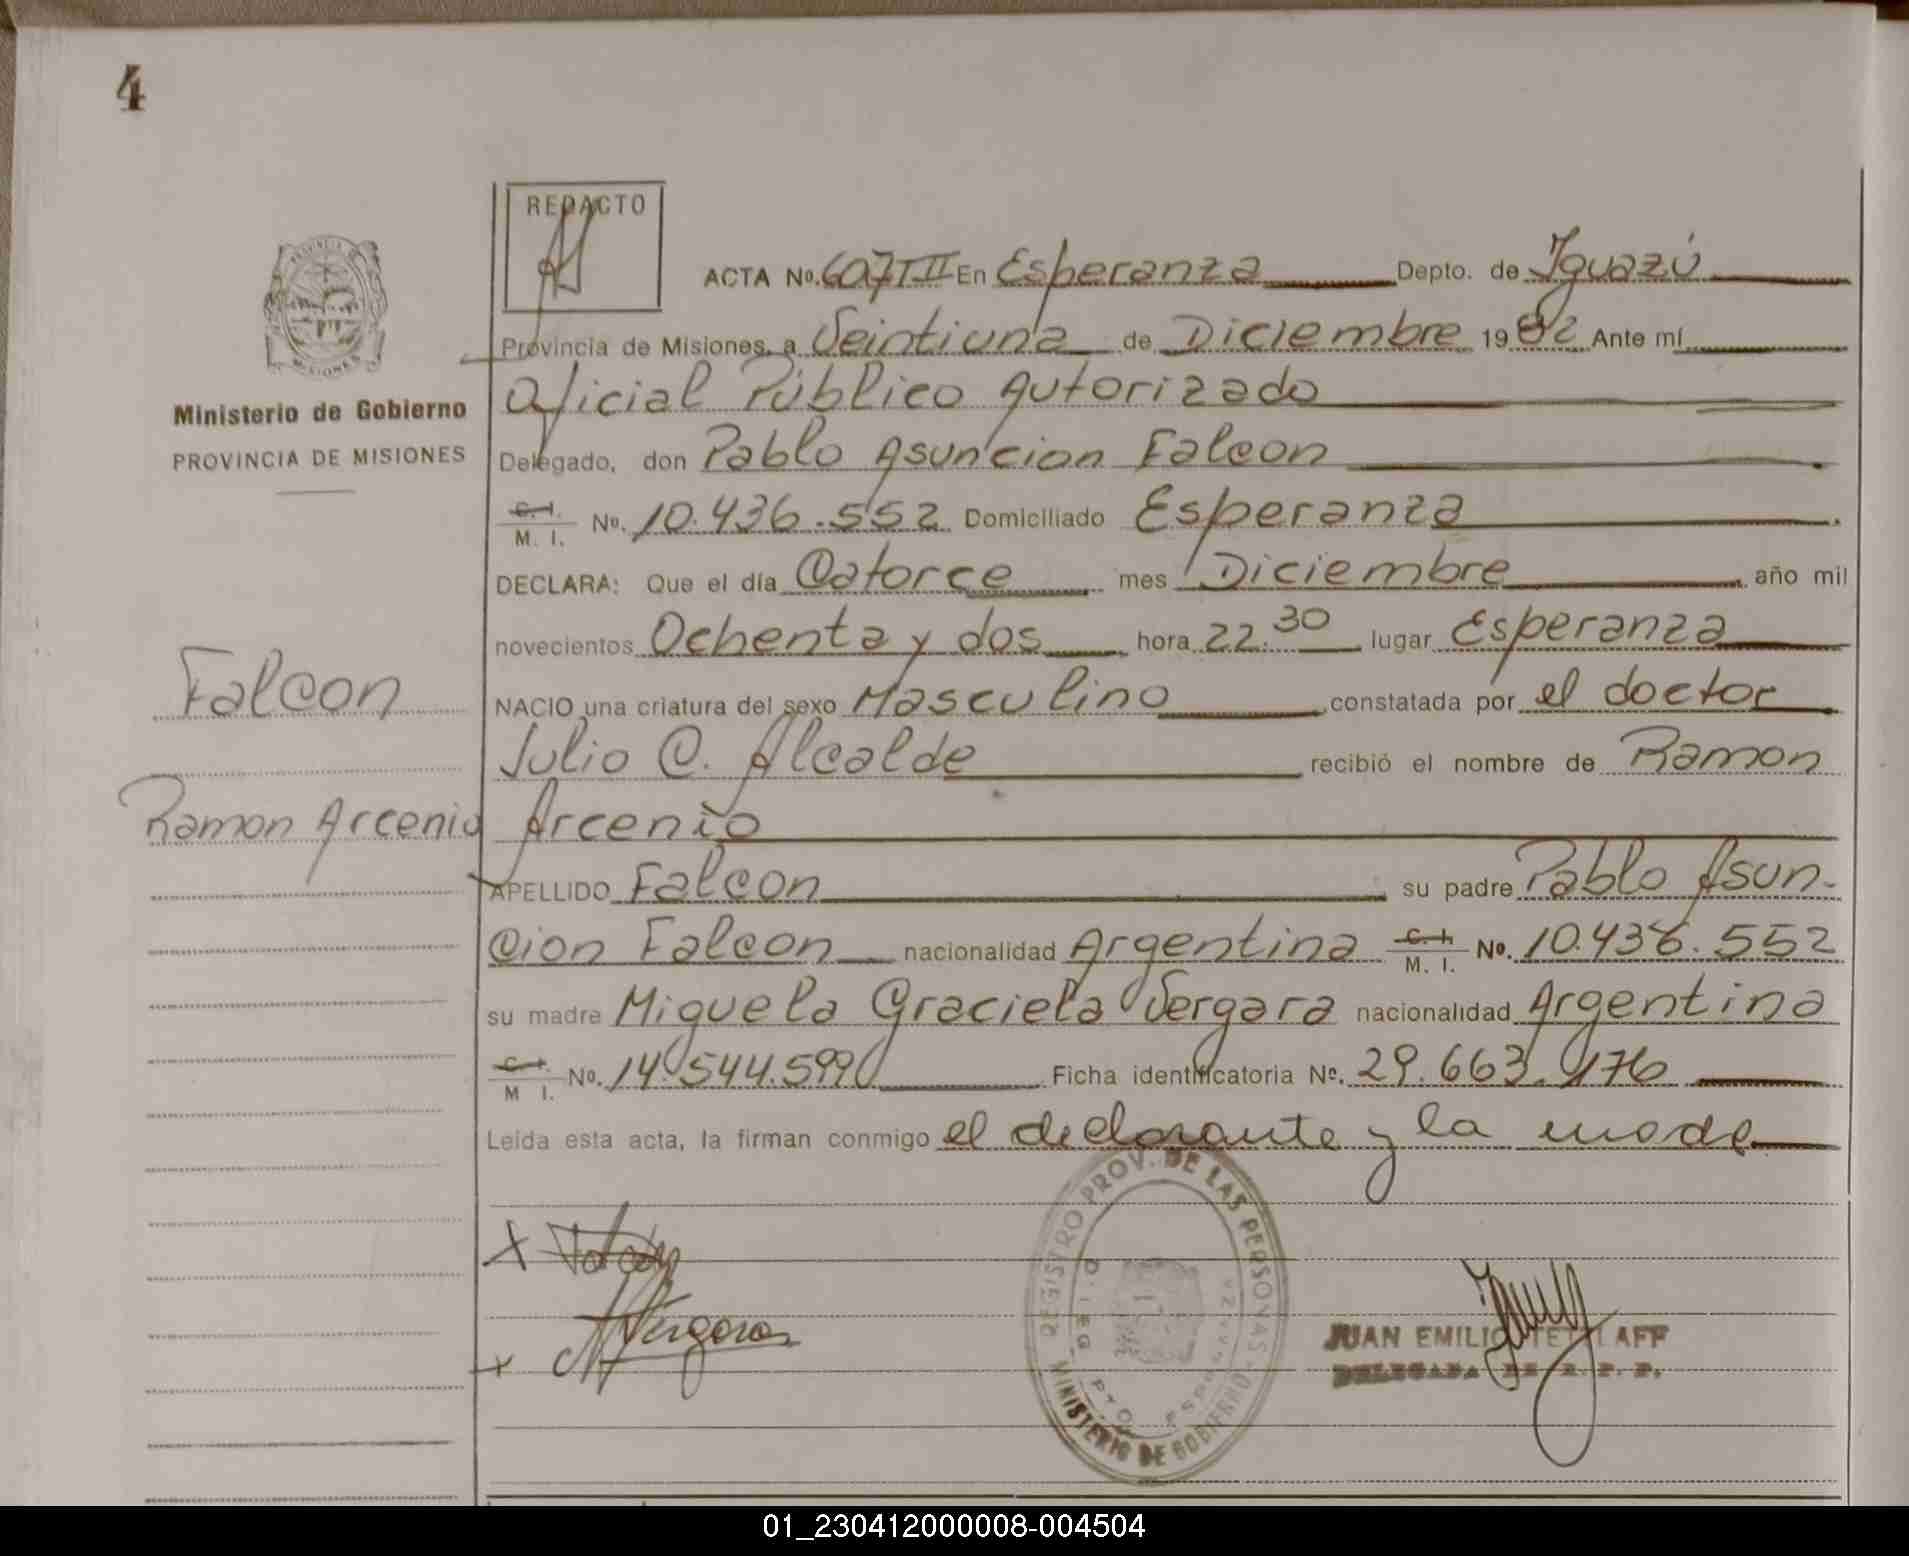 4
REDACTO
ACTA Nº. 607 T II En Esperanza Depto. de Iguazú
Provincia de Misiones, a Veintiuna de Diciembre 1982 Ante mí
Oficial Público Autorizado
Delegado, don Pablo Asuncion Falcon
C. I. / M. I. Nº. 10.436.552 Domiciliado Esperanza
DECLARA: Que el día Catorce mes Diciembre año mil
novecientos Ochenta y dos hora 22.30 lugar Esperanza
NACIO una criatura del sexo Masculino constatada por el doctor
Julio C. Alcalde recibió el nombre de Ramon
Arcenio
APELLIDO Falcon su padre Pablo Asun-
cion Falcon nacionalidad Argentina C. I. / M. I. Nº. 10.436.552
su madre Miguela Graciela Vergara nacionalidad Argentina
C. I. / M I. Nº. 14.544.599 Ficha identificatoria Nº. 29.663.176
Leída esta acta, la firman conmigo el declarante y la made
PROVINCIA DE MISIONES
Ministerio de Gobierno
PROVINCIA DE MISIONES
Falcon
Ramon Arcenio
Vergara
REGISTRO PROV. DE LAS PERSONAS
MINISTERIO DE GOBIERNO
JUAN EMILIO
DELEGADA DE R. P. P.
01_230412000008-004504